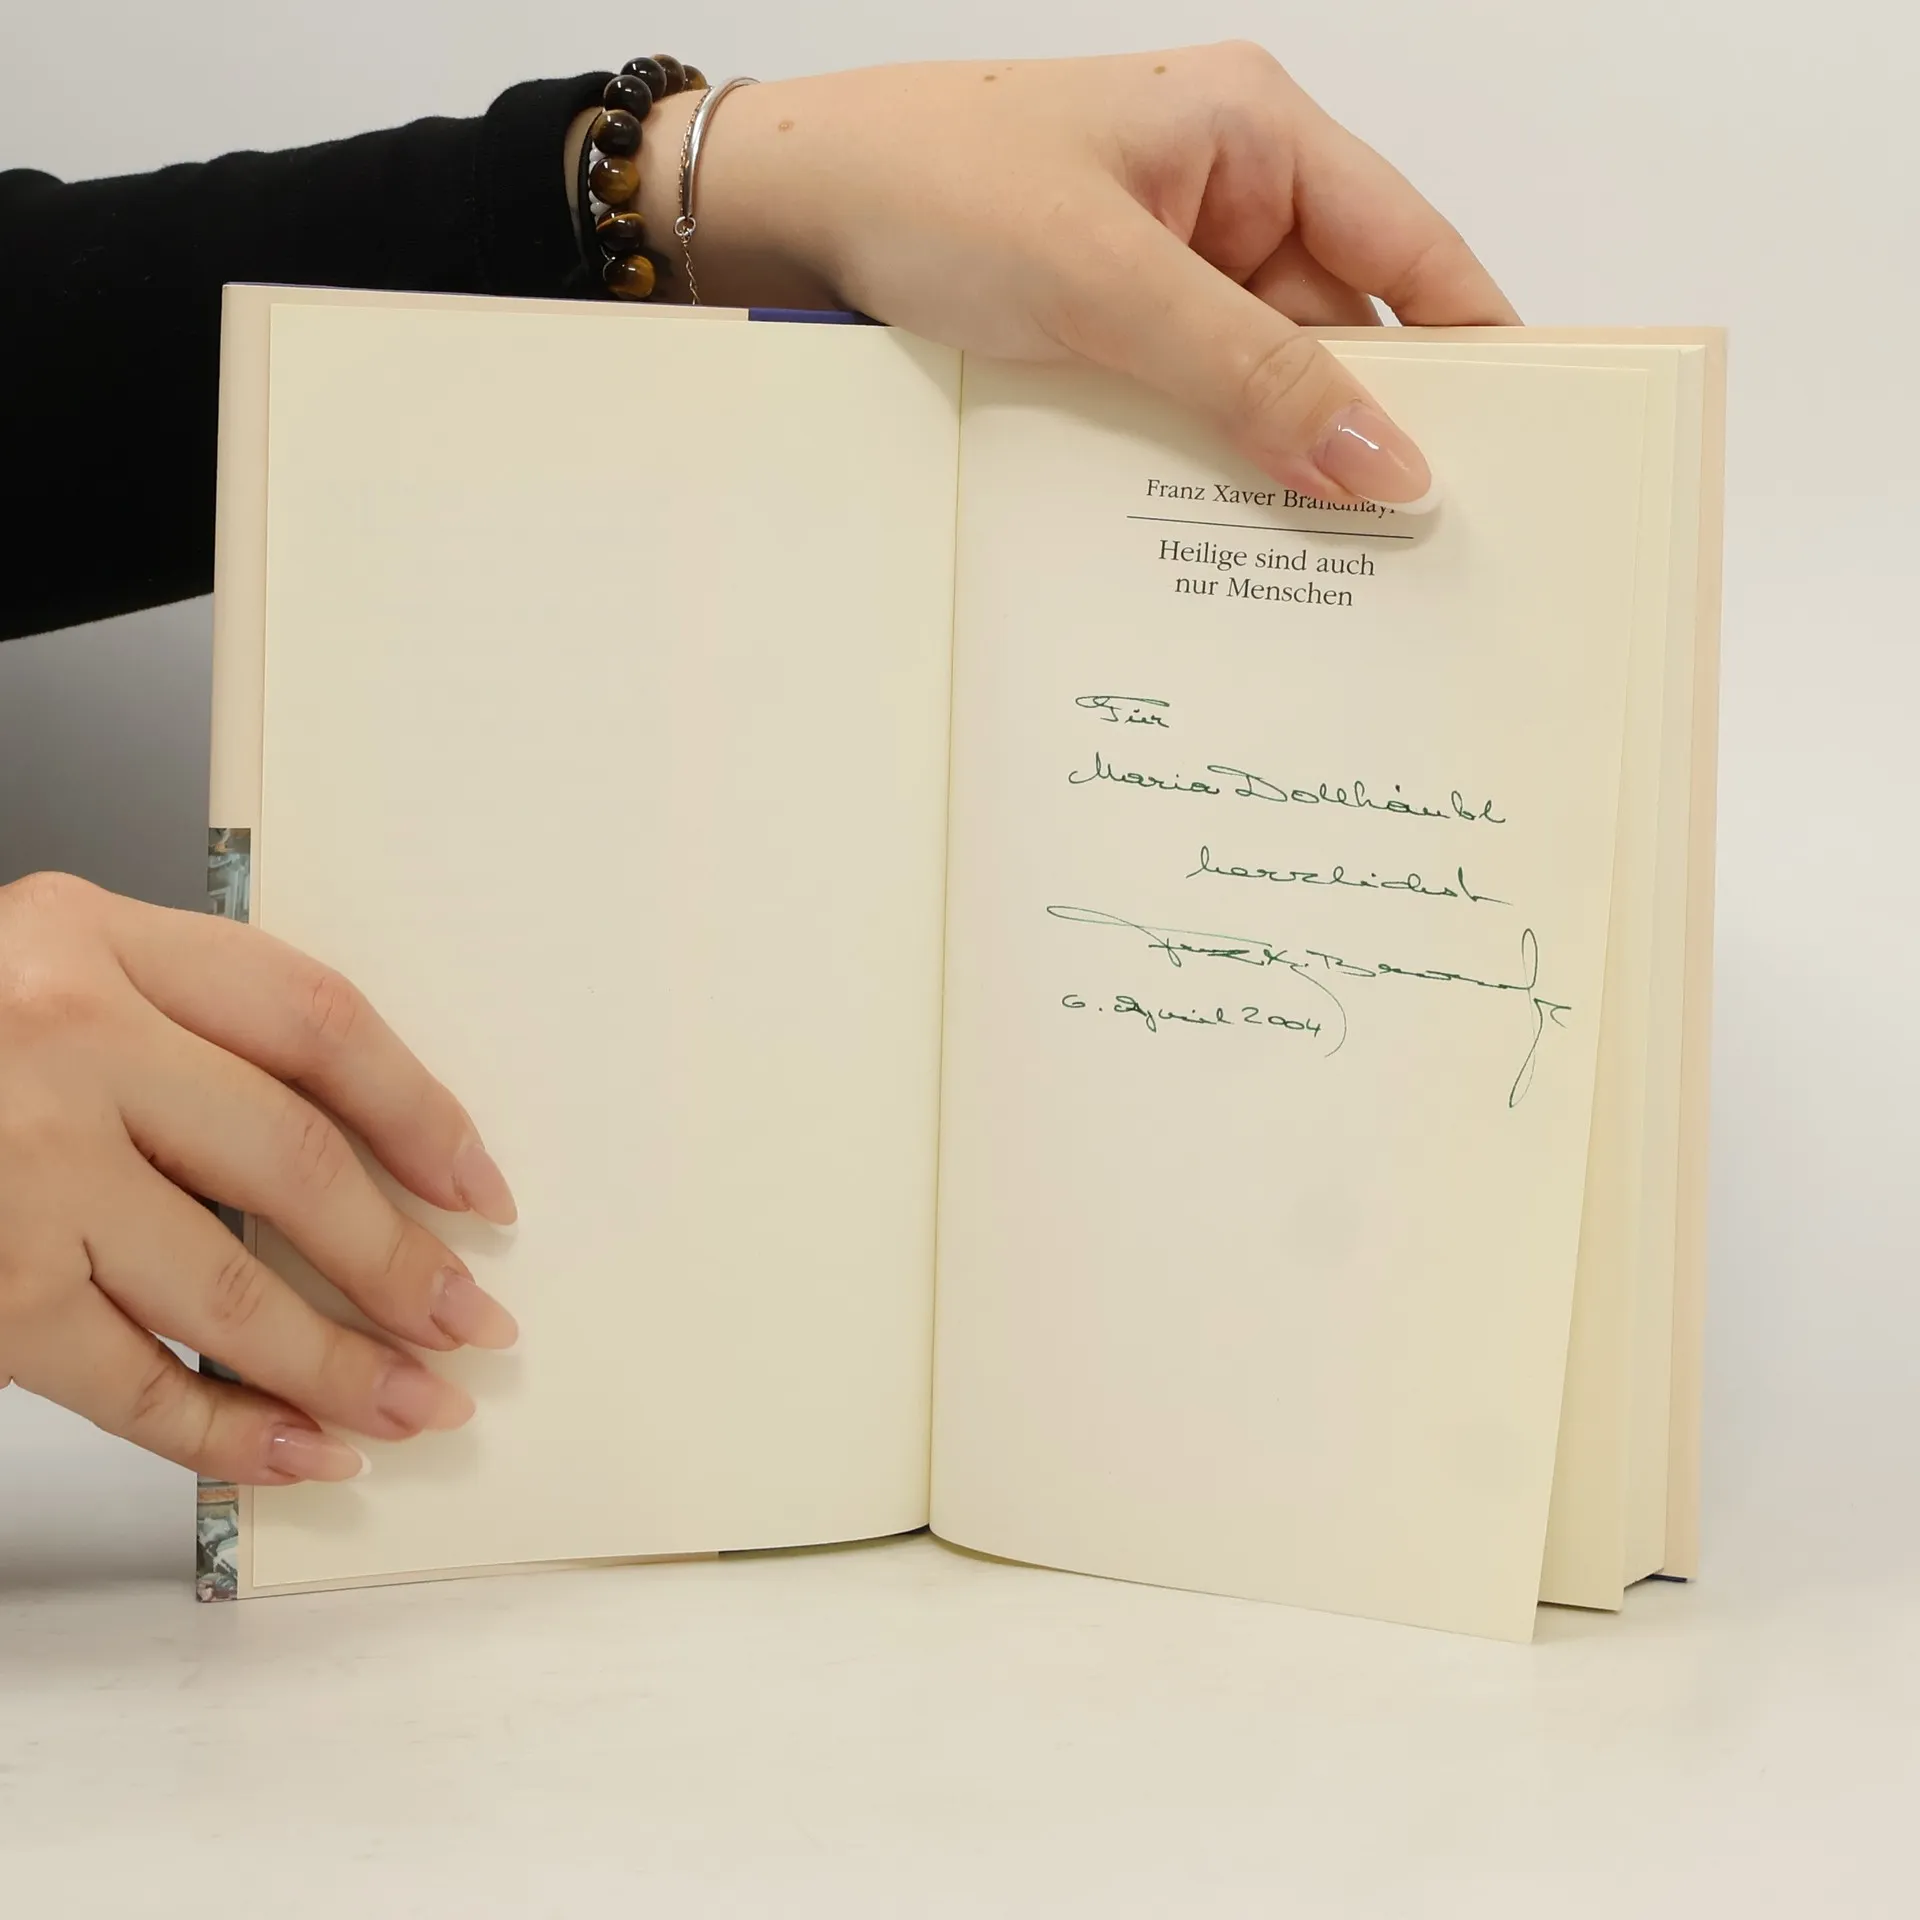 Franz Xaver Brandmayr
Heilige sind auch
nur Menschen
Für
Maria Dollhäubl
herzlichst
Franz X. Brandmayr
6. April 2004